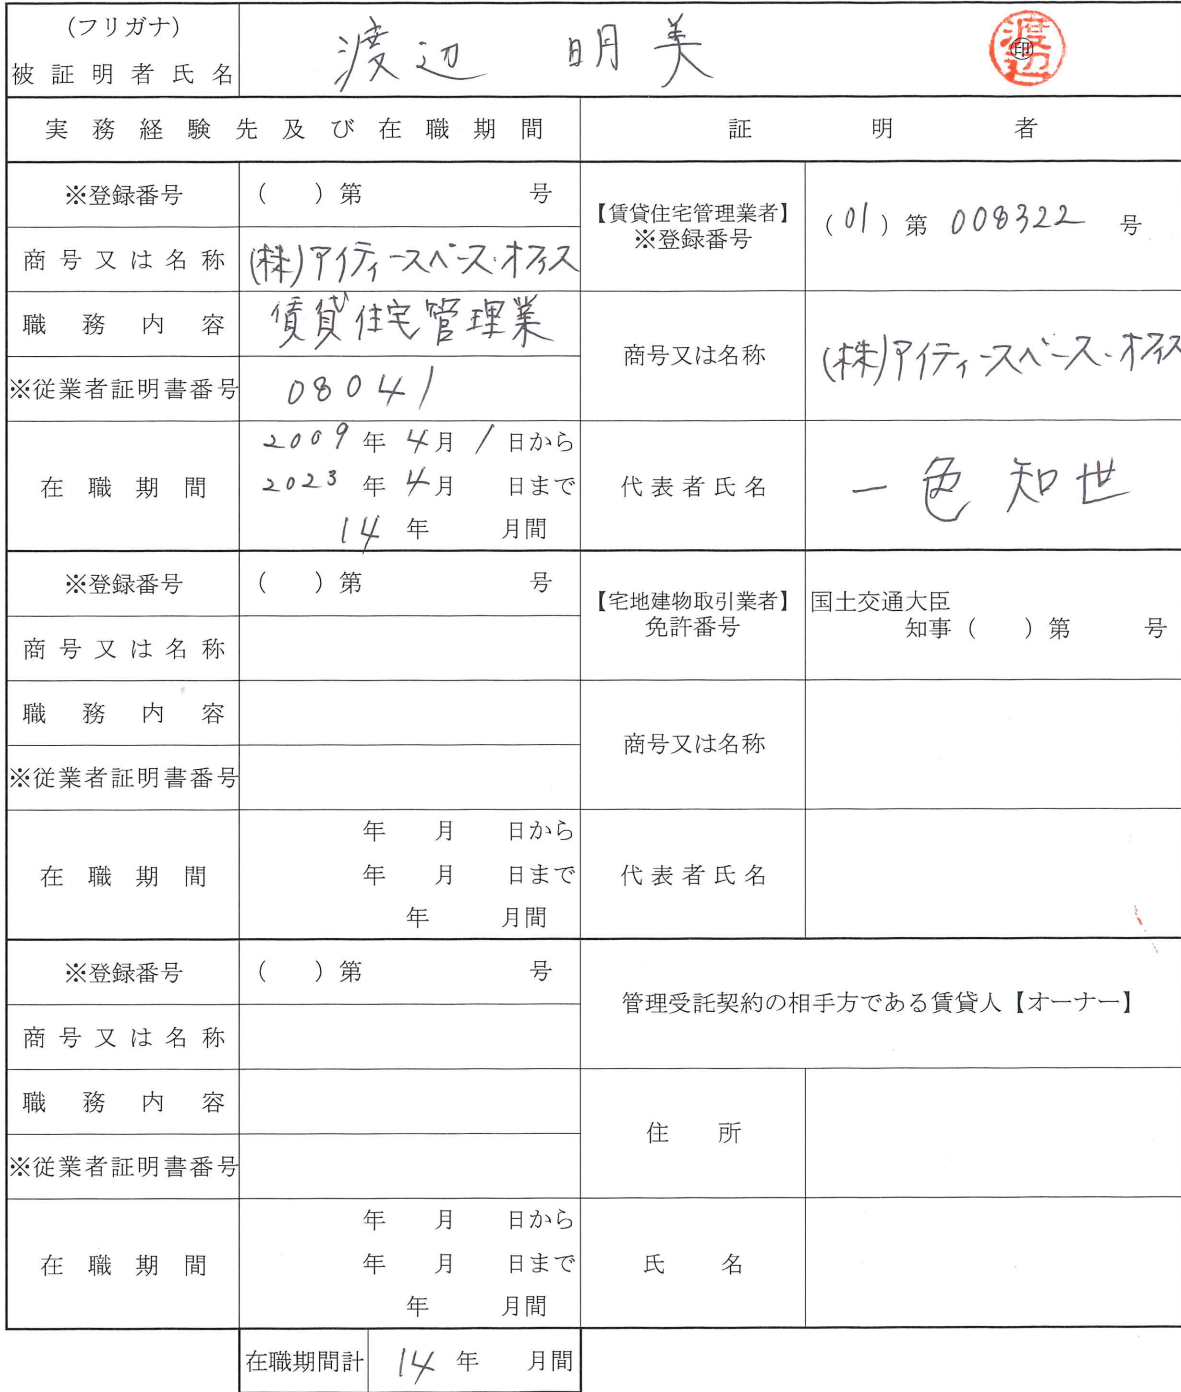 (フリガナ)
被証明者氏名 渡辺 明美 ㊞ 渡辺
実務経験先及び在職期間 証明者
※登録番号 ( )第 号
【賃貸住宅管理業者】
※登録番号 (01)第 008322 号
商号又は名称 (株)アイティースペース・オフィス
職務内容 賃貸住宅管理業
商号又は名称 (株)アイティースペース・オフィス
※従業者証明書番号 08041
在職期間
2009年 4月 1日から
2023年 4月 日まで
14年 月間
代表者氏名 一色 知世
※登録番号 ( )第 号
【宅地建物取引業者】
免許番号
国土交通大臣
知事( )第 号
商号又は名称
職務内容
商号又は名称
※従業者証明書番号
在職期間
年 月 日から
年 月 日まで
年 月間
代表者氏名
※登録番号 ( )第 号
管理受託契約の相手方である賃貸人【オーナー】
商号又は名称
職務内容
住所
※従業者証明書番号
在職期間
年 月 日から
年 月 日まで
年 月間
氏名
在職期間計 14年 月間